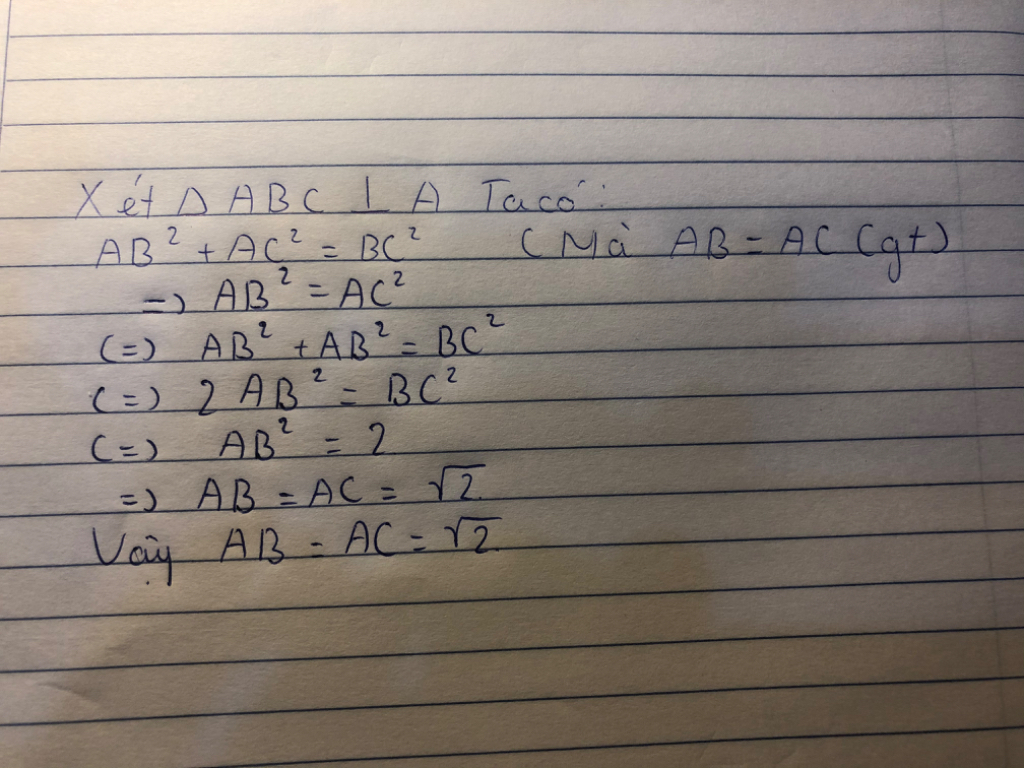 Xét Δ ABC ⊥ A Ta có:
AB² + AC² = BC² (Mà AB = AC (gt)
=) AB² = AC²
(=) AB² + AB² = BC²
(=) 2 AB² = BC²
(=) AB² = 2
=) AB = AC = √2
Vậy AB = AC = √2